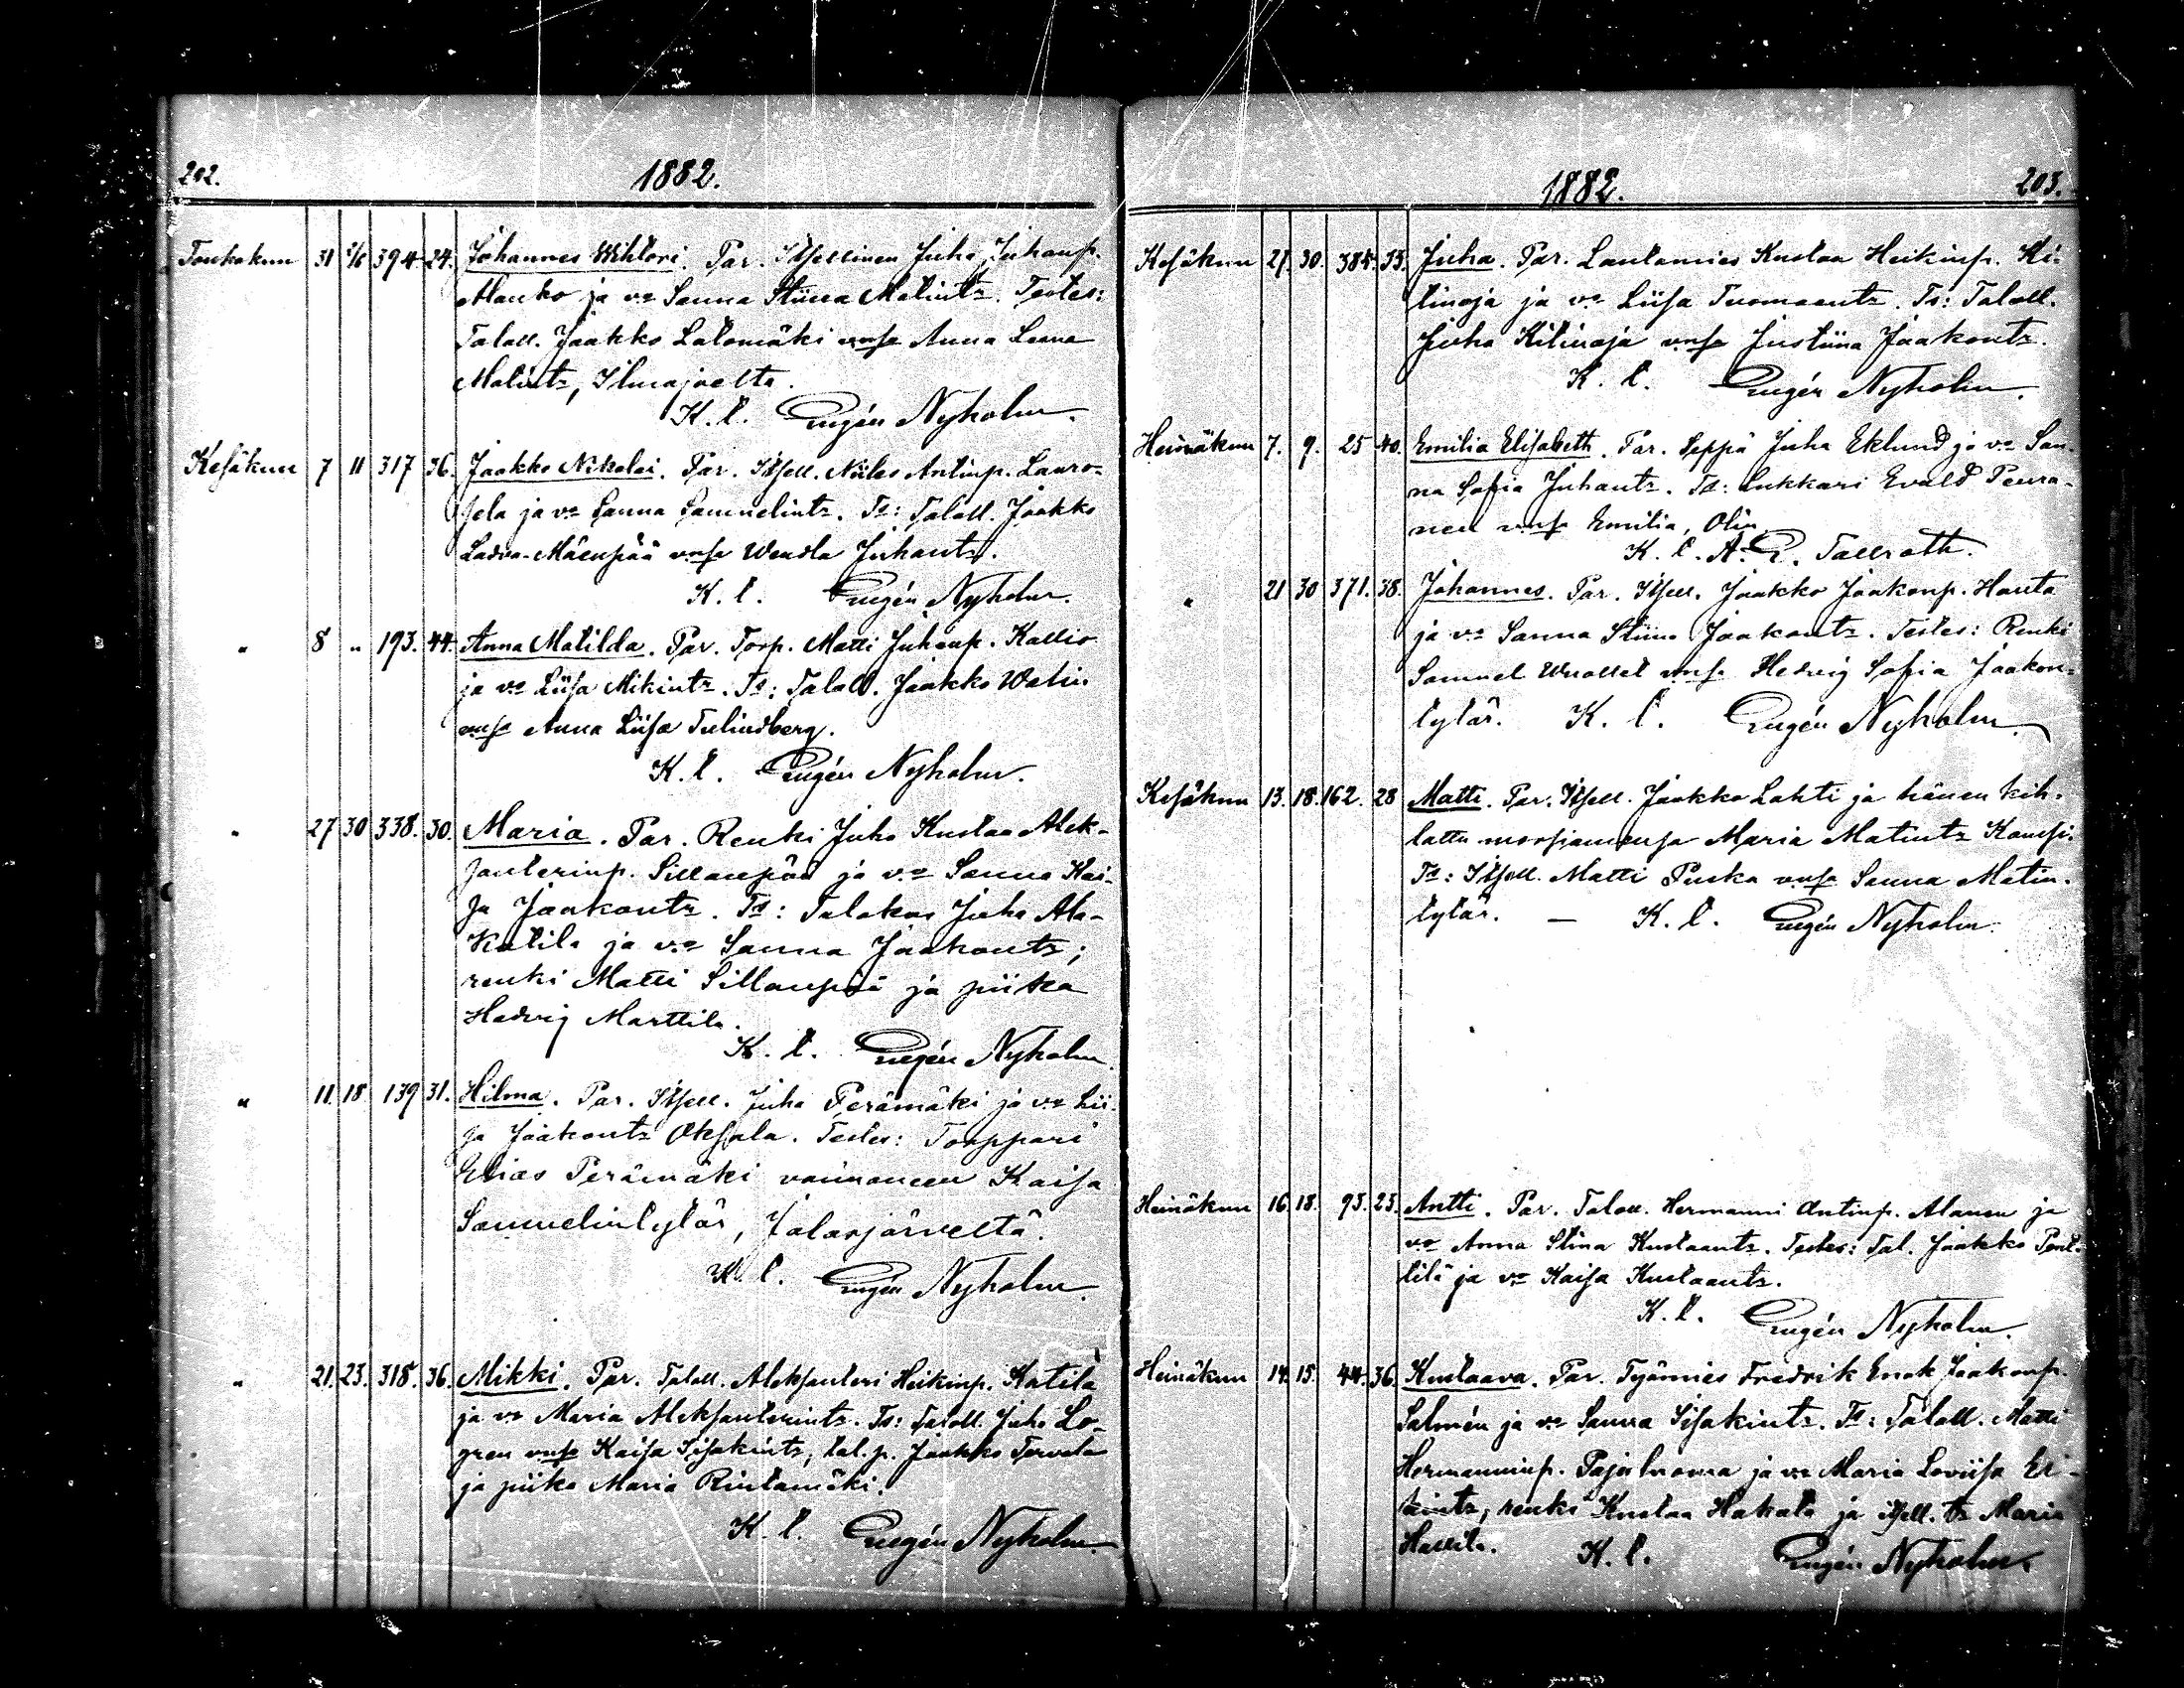 202.
1882.
Toukokuu 31 2/6 394 24. Johannes Wihtori. Par. Itsellinen Juha Juhanp.
Alanko ja vo Sanna Stiina Matintr. Testes:
Taloll. Jaakko Latomäki vnsa Anna Leena
Matintr, Ilmajoelta.
K. l. Eugén Nyholm.
Kesäkuu 7 11 317 36. Jaakko Nikolai. Par. Itsell. Niiles Antinp. Lauro-
sela ja vo Sanna Samuelintr. Ts: Taloll. Jaakko
Ladva-Mäenpää vnsa Wendla Juhantr.
K. l. Eugén Nyholm.
" 8 " 193. 44. Anna Matilda. Par. Torp. Matti Juhanp. Kallio
ja vo Liisa Mikintr. Ts: Taloll. Jaakko Watin
vnsa Anna Liisa Tulindberg.
K. l. Eugén Nyholm.
" 27 30 338. 30. Maria. Par. Renki Juho Kustaa Alek-
santerinp. Sillanpää ja vo Sanna Kai-
sa Jaakontr. Ts: Talokas Juha Ala-
Katila ja vo Sanna Jaakontr;
renki Matti Sillanpää ja piika
Hedvig Marttila.
K. l. Eugén Nyholm.
" 11. 18. 139 31. Hilma. Par. Itsell. Juha Perämäki ja vo Lii-
sa Jaakontr Oksala. Testes: Torppari
Elias Perämäki vaimoneen Kaisa
Samuelintytär, Jalasjärveltä.
K. l. Eugén Nyholm.
" 21. 23. 318. 36. Mikki. Par. Taloll. Aleksanteri Heikinp. Katila
ja vo Maria Aleksanterintr. Ts: Taloll. Juho Lo-
gren vnsa Kaisa Iisakintr, tal.p. Jaakko Tervala
ja piika Maria Rintamäki.
K. l. Eugén Nyholm.
1882.
203.
Kesäkuu 27. 30. 385. 33. Juha. Par. Lautamies Kustaa Heikinp. Ki-
tinoja ja vo Liisa Tuomaantr. Ts: Taloll.
Juha Kitinoja vnsa Justiina Jaakontr.
K. l. Eugén Nyholm.
Heinäkuu 7. 9. 25 40. Emilia Elisabeth. Par. Seppä Juha Eklund ja vo San-
na Sofia Juhantr. Ts: Lukkari Evald Peura-
nen vnsa Emilia, Olin
K. l. A. E. Tallroth.
" 21 30 371. 38. Johannes. Par. Itsell. Jaakko Jaakonp. Hauta
ja vo Sanna Stiina Jaakontr. Testes: Renki
Samuel Wuollet vnsa Hedvig Sofia Jaakon-
tytär. K. l. Eugén Nyholm.
Kesäkuu 13. 18. 162. 28 Matti. Par. Itsell. Jaakko Lahti ja hänen kih-
lattu morsiamensa Maria Matintr Kamppi.
Ts: Itsell. Matti Puska vnsa Sanna Matin-
tytär. — K. l. Eugén Nyholm.
Heinäkuu 16 18. 93. 23. Antti. Par. Taloll. Hermanni Antinp. Alanen ja
vo Anna Stina Kustaantr. Testes: Tal. Jaakko Pent-
tilä ja vo Kaisa Kustaantr.
K. l. Eugén Nyholm.
Heinäkuu 14. 15. 44. 36. Kustaava. Par. Työmies Fredrik Enok Jaakonp.
Salmén ja vo Sanna Iisakintr. Ts: Taloll. Matti
Hermanninp. Pajuluoma ja vo Maria Loviisa Er-
kintr, renki Kustaa Hakala ja itsell. tr Maria
K. l. Eugén Nyholm.